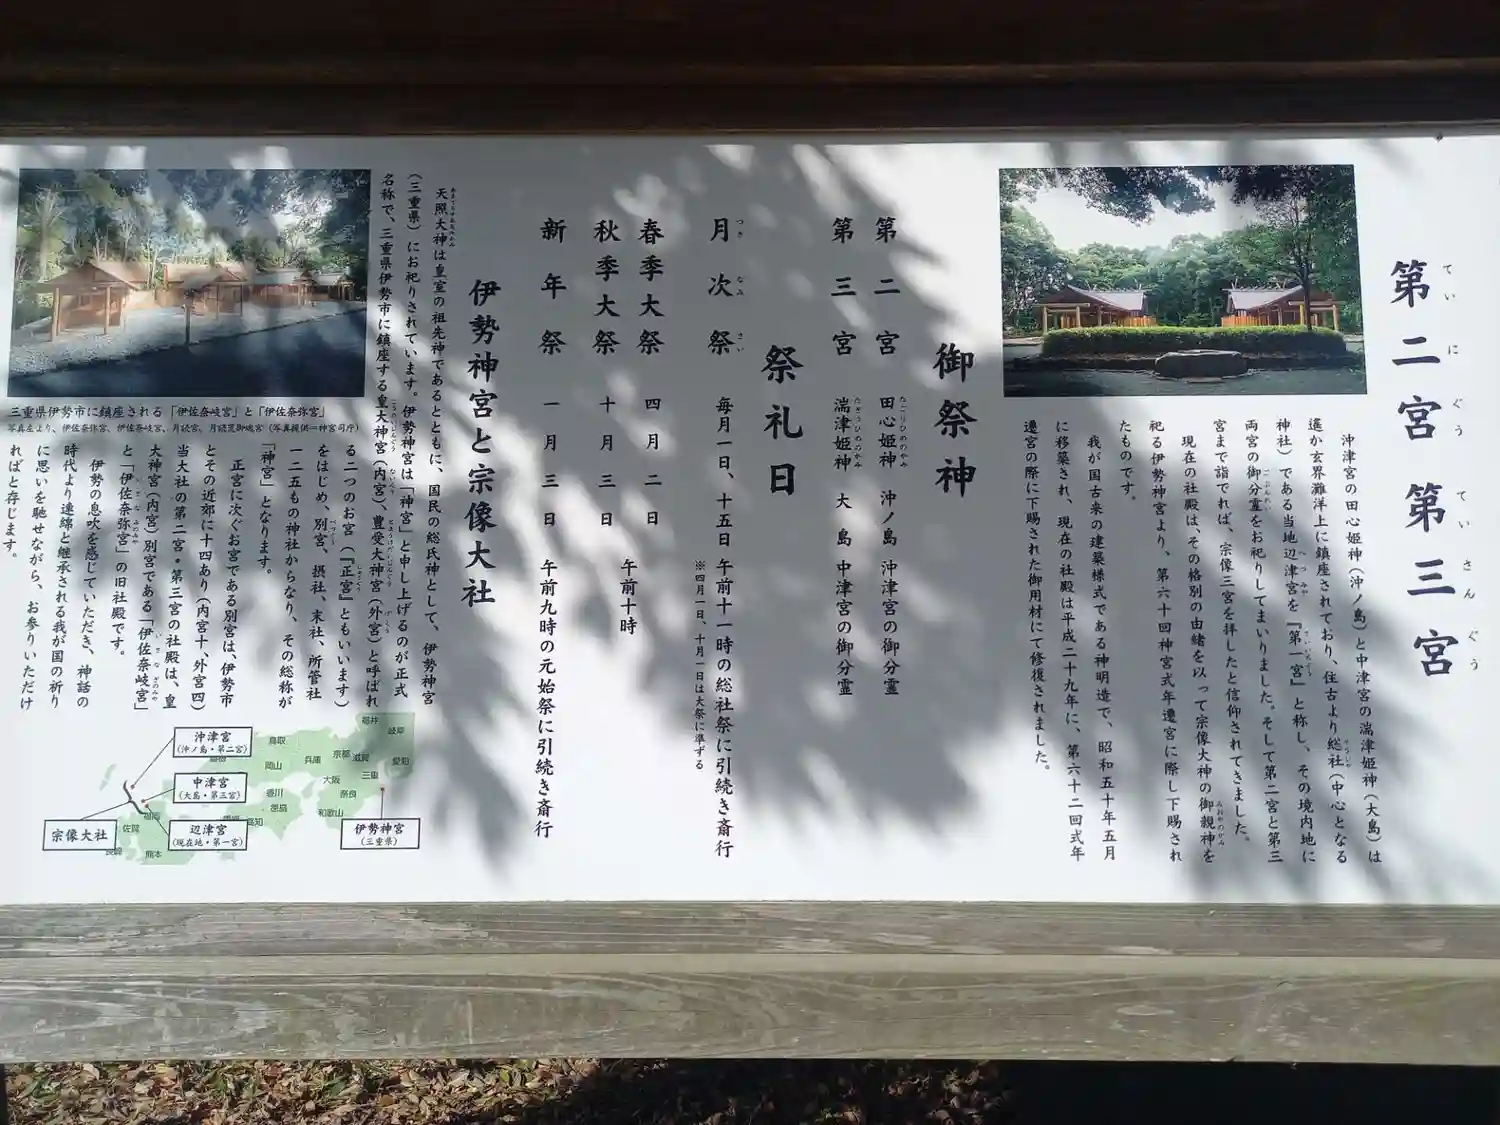 第二宮 第三宮
ていにぐう ていさんぐう
沖津宮の田心姫神（沖ノ島）と中津宮の湍津姫神（大島）は
遙か玄界灘洋上に鎮座されており、住古より総社（中心となる
神社）である当地辺津宮を『第一宮』と称し、その境内地に
両宮の御分霊をお祀りしてまいりました。そして第二宮と第三
宮まで詣でれば、宗像三宮を拝したと信仰されてきました。
現在の社殿は、その格別の由緒を以って宗像大神の御親神を
祀る伊勢神宮より、第六十回神宮式年遷宮に際し下賜され
たものです。
我が国古来の建築様式である神明造で、昭和五十年五月
に移築され、現在の社殿は平成二十九年に、第六十二回式年
遷宮の際に下賜された御用材にて修復されました。
御祭神
第二宮 田心姫神 沖ノ島 沖津宮の御分霊
たごりひめのかみ
第三宮 湍津姫神 大島 中津宮の御分霊
たぎつひめのかみ
祭礼日
月次祭 毎月一日、十五日 午前十一時の総社祭に引続き斎行
つきなみさい
※四月一日、十月一日は大祭に準ずる
春季大祭 四月二日
秋季大祭 十月三日
午前十時
新年祭 一月三日 午前九時の元始祭に引続き斎行
伊勢神宮と宗像大社
天照大神は皇室の祖先神であるとともに、国民の総氏神として、伊勢神宮
（三重県）にお祀りされています。伊勢神宮は「神宮」と申し上げるのが正式
名称で、三重県伊勢市に鎮座する皇大神宮（内宮）、豊受大神宮（外宮）と呼ばれ
る二つのお宮（『正宮』ともいいます）
をはじめ、別宮、摂社、末社、所管社
一二五もの神社からなり、その総称が
「神宮」となります。
正宮に次ぐお宮である別宮は、伊勢市
とその近郊に十四あり（内宮十、外宮四）
当大社の第二宮・第三宮の社殿は、皇
大神宮（内宮）別宮である「伊佐奈岐宮」
と「伊佐奈弥宮」の旧社殿です。
伊勢の息吹を感じていただき、神話の
時代より連綿と継承される我が国の祈り
に思いを馳せながら、お参りいただけ
ればと存じます。
三重県伊勢市に鎮座される「伊佐奈岐宮」と「伊佐奈弥宮」
写真左より、伊佐奈弥宮、伊佐奈岐宮、月読宮、月読荒御魂宮（写真提供＝神宮司庁）
沖津宮
（沖ノ島・第二宮）
中津宮
（大島・第三宮）
辺津宮
（現在地・第一宮）
宗像大社
伊勢神宮
（三重県）
福井
岐阜
鳥取
京都
滋賀
愛知
岡山
兵庫
大阪
三重
香川
奈良
徳島
和歌山
高知
福岡
佐賀
長崎
熊本